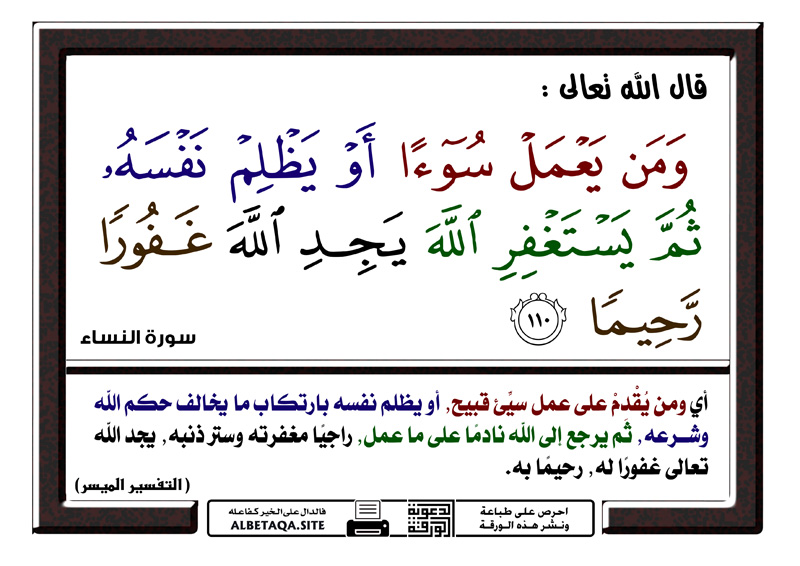 قال الله تعالى :
وَمَن يَعْمَلْ سُوٓءًا أَوْ يَظْلِمْ نَفْسَهُۥ
ثُمَّ يَسْتَغْفِرِ ٱللَّهَ يَجِدِ ٱللَّهَ غَفُورًا
رَّحِيمًا ١١٠
سورة النساء
أي ومن يُقْدِمْ على عمل سيِّئ قبيح, أو يظلم نفسه بارتكاب ما يخالف حكم الله
وشرعه, ثم يرجع إلى الله نادمًا على ما عمل, راجيًا مغفرته وستر ذنبه, يجد الله
تعالى غفورًا له, رحيمًا به.
(التفسير الميسر)
احرص على طباعة
ونشر هذه الورقة
الورقة
الدعوية
فالدال على الخير كفاعله
ALBETAQA.SITE